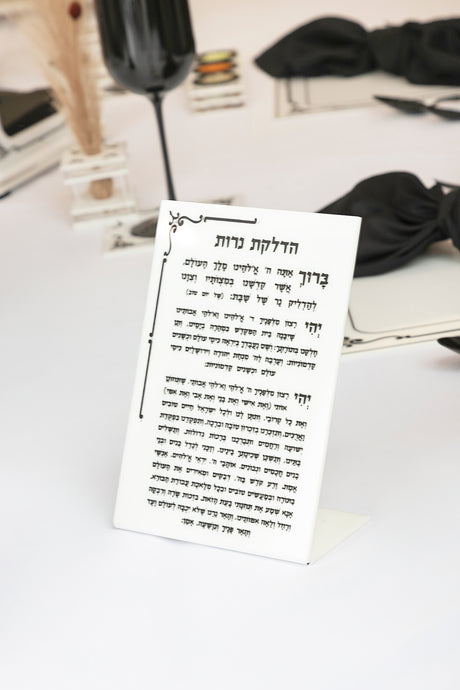 הדלקת נרות
בָּרוּךְ אַתָּה ה' אֱ-לֹהֵינוּ מֶלֶךְ הָעוֹלָם,
אֲשֶׁר קִדְּשָׁנוּ בְּמִצְוֹתָיו וְצִוָּנוּ
לְהַדְלִיק נֵר שֶׁל שַׁבָּת: (של יום טוב)
יְהִי רָצוֹן מִלְּפָנֶיךָ ה' אֱ-לֹהֵינוּ וֵא-לֹהֵי אֲבוֹתֵינוּ
שֶׁיִּבָּנֶה בֵּית הַמִּקְדָּשׁ בִּמְהֵרָה בְיָמֵינוּ, וְתֵן
חֶלְקֵנוּ בְּתוֹרָתֶךָ: וְשָׁם נַעֲבָדְךָ בְּיִרְאָה כִּימֵי עוֹלָם וּכְשָׁנִים
קַדְמוֹנִיּוֹת: וְעָרְבָה לַה' מִנְחַת יְהוּדָה וִירוּשָׁלָיִם כִּימֵי
עוֹלָם וּכְשָׁנִים קַדְמוֹנִיּוֹת:
יְהִי רָצוֹן מִלְּפָנֶיךָ ה' אֱ-לֹהַי וֵא-לֹהֵי אֲבוֹתַי, שֶׁתְּחוֹנֵן
אוֹתִי (וְאֶת אִישִׁי וְאֶת בָּנַי וְאֶת אָבִי וְאֶת אִמִּי)
וְאֶת כָּל קְרוֹבַי, וְתִתֵּן לָנוּ וּלְכָל יִשְׂרָאֵל חַיִּים טוֹבִים
וַאֲרֻכִּים, וְתִזְכְּרֵנוּ בְּזִכְרוֹן טוֹבָה וּבְרָכָה, וְתִפְקְדֵנוּ בִּפְקֻדַּת
יְשׁוּעָה וְרַחֲמִים וּתְבָרְכֵנוּ בְּרָכוֹת גְּדוֹלוֹת, וְתַשְׁלִים
בָּתֵּינוּ, וְתַשְׁכֵּן שְׁכִינָתְךָ בֵּינֵינוּ, וְזַכֵּנִי לְגַדֵּל בָּנִים וּבְנֵי
בָנִים חֲכָמִים וּנְבוֹנִים, אוֹהֲבֵי ה', יִרְאֵי אֱ-לֹהִים, אַנְשֵׁי
אֱמֶת, זֶרַע קֹדֶשׁ בַּה' דְּבֵקִים וּמְאִירִים אֶת הָעוֹלָם
בְּתוֹרָה וּבְמַעֲשִׂים טוֹבִים וּבְכָל מְלֶאכֶת עֲבוֹדַת הַבּוֹרֵא,
אָנָּא שְׁמַע אֶת תְּחִנָּתִי בָּעֵת הַזֹּאת, בִּזְכוּת שָׂרָה וְרִבְקָה
וְרָחֵל וְלֵאָה אִמּוֹתֵינוּ, וְהָאֵר נֵרֵנוּ שֶׁלֹּא יִכְבֶּה לְעוֹלָם וָעֶד
וְהָאֵר פָּנֶיךָ וְנִוָּשֵׁעָה, אָמֵן: